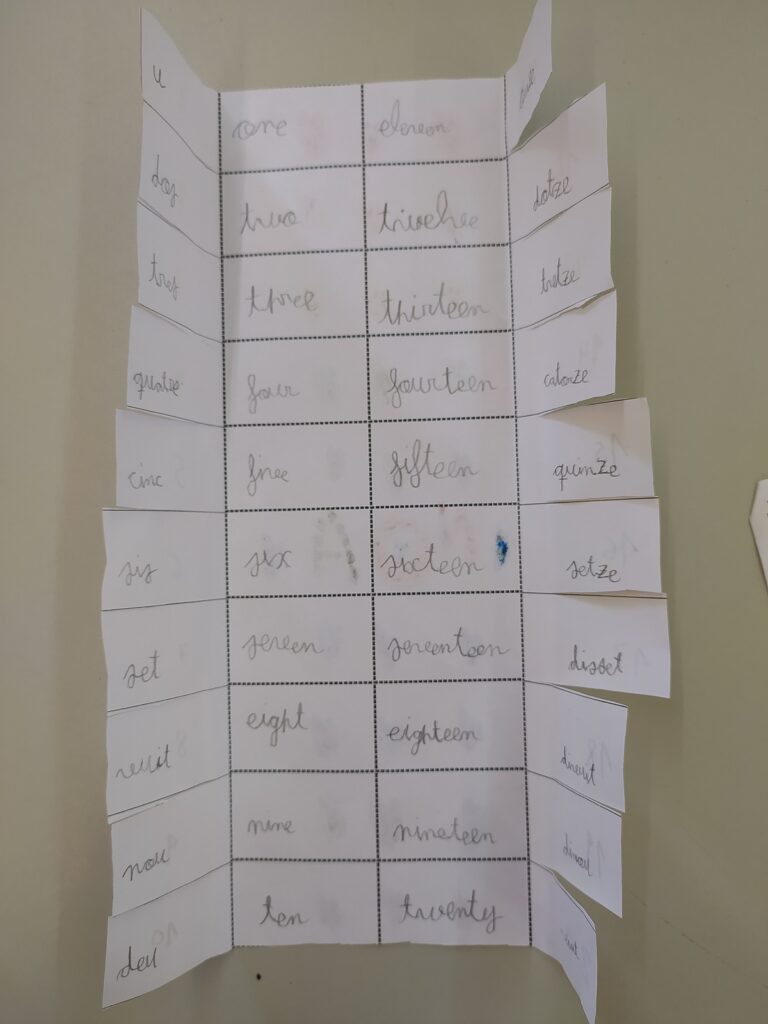 u one eleven
dos two twelve dotze
tres three thirteen tretze
quatre four fourteen catorze
cinc five fifteen quinze
sis six sixteen setze
set seven seventeen disset
vuit eight eighteen divuit
nou nine nineteen dinou
deu ten twenty vint